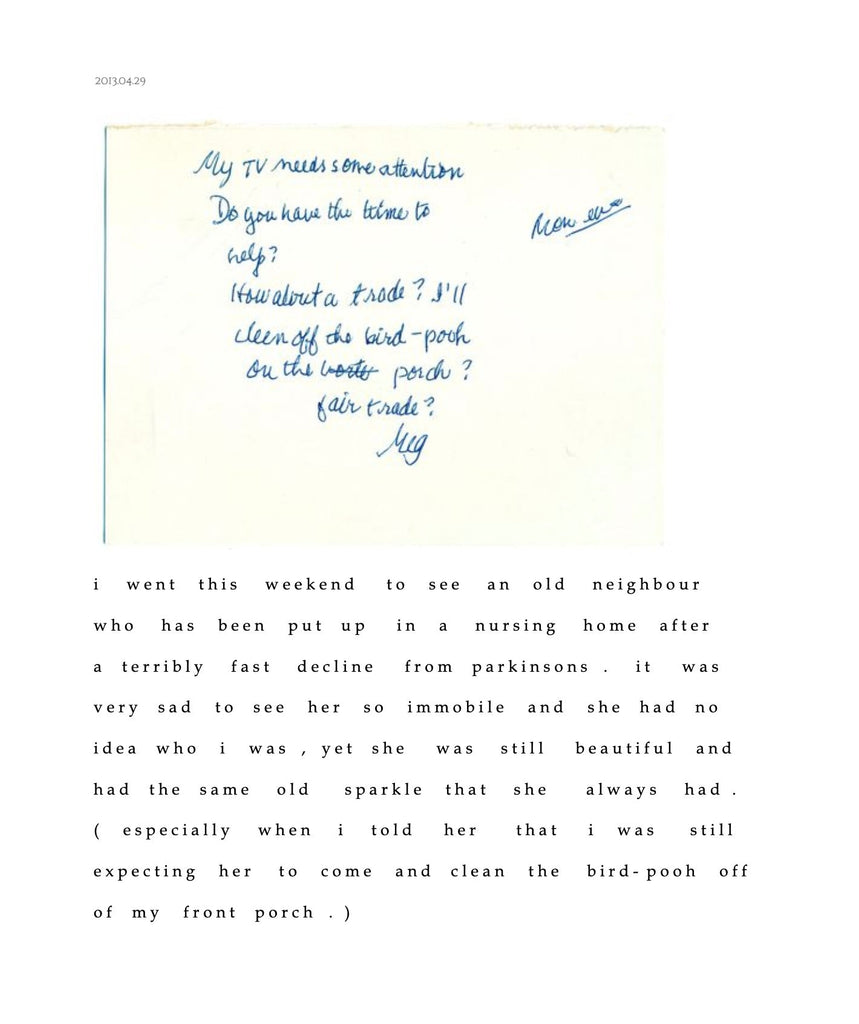 2013.04.29
My TV needs some attention
Do you have the time to
Mon eve
help?
How about a trade? I'll
cleen off the bird-pooh
on the porch?
fair trade?
Meg
i went this weekend to see an old neighbour
who has been put up in a nursing home after
a terribly fast decline from parkinsons . it was
very sad to see her so immobile and she had no
idea who i was , yet she was still beautiful and
had the same old sparkle that she always had .
( especially when i told her that i was still
expecting her to come and clean the bird-pooh off
of my front porch . )